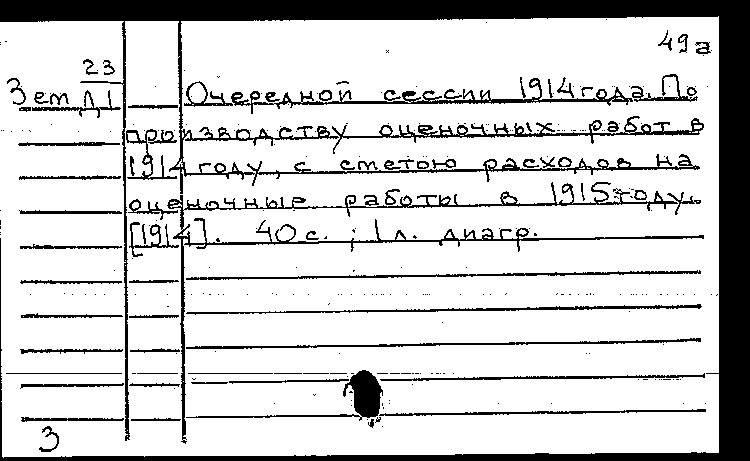 49а
23
Зем Д1 Очередной сессии 1914 года. По
производству оценочных работ в
1914 году, с сметою расходов на
оценочные работы в 1915 году.
[1914]. 40 с. ; 1 л. диагр.
3